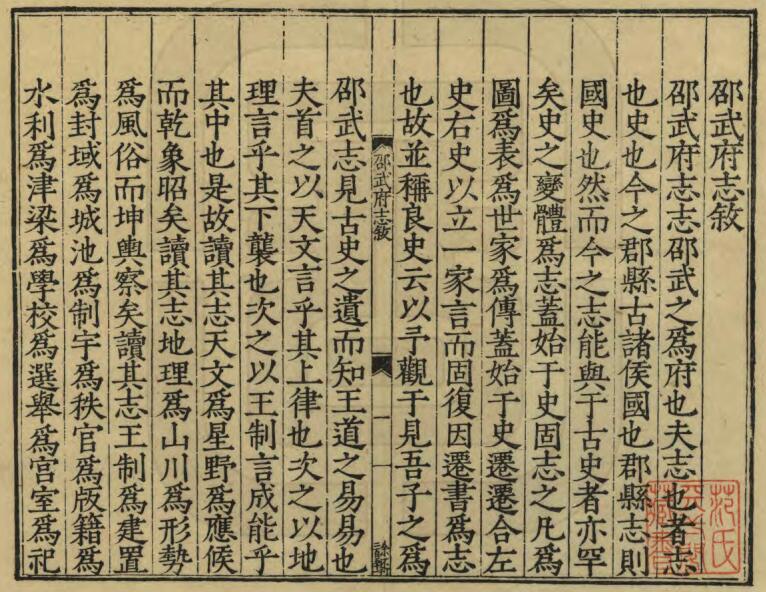 邵武府志敘
邵武府志志邵武之爲府也夫志也者志
也史也今之郡縣古諸侯國也郡縣志則
國史也然而今之志能與于古史者亦罕
矣史之變體爲志蓋始于史固志之凡爲
圖爲表爲世家爲傳蓋始于史遷遷合左
史右史以立一家言而固復因遷書爲志
也故並稱良史云以予觀于見吾子之爲
邵武府志敘
一
邵武志見古史之遺而知王道之易易也
夫首之以天文言乎其上律也次之以地
理言乎其下襲也次之以王制言成能乎
其中也是故讀其志天文爲星野爲應候
而乾象昭矣讀其志地理爲山川爲形勢
爲風俗而坤輿察矣讀其志王制爲建置
爲封域爲城池爲制宇爲秩官爲版籍爲
水利爲津梁爲學校爲選舉爲宮室爲祀